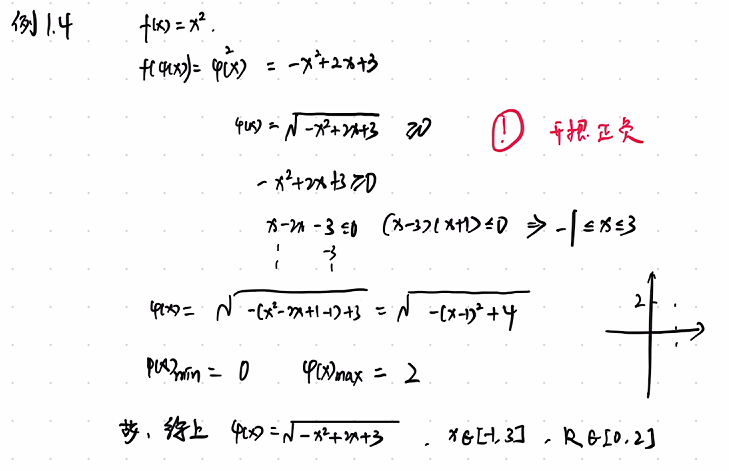 例1.4 f(x)=x².
f(φ(x))=φ²(x) = -x²+2x+3
φ(x)=√(-x²+2x+3) ≥0 ! 开根正负
-x²+2x+3≥0
x-2x-3≤0 (x-3)(x+1)≤0 ⇒ -1≤x≤3
1 -3
1 1
φ(x)= √(-(x²-2x+1-1)+3) = √(-(x-1)²+4)
2
φ(x)min = 0 φ(x)max = 2
故、综上 φ(x)=√(-x²+2x+3) . x∈[-1,3] , R∈[0,2]